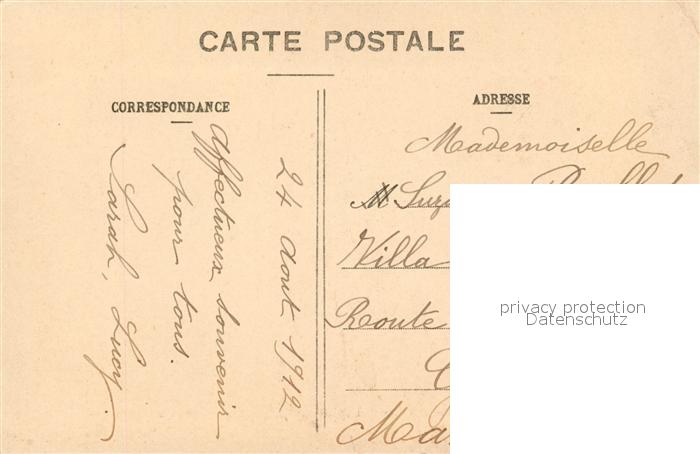 CARTE POSTALE
CORRESPONDANCE
24 Aout 1912
Affectueux souvenir
pour tous.
Sarah, Lucy.
ADRESSE
Mademoiselle
Villa
Route
privacy protection
Datenschutz